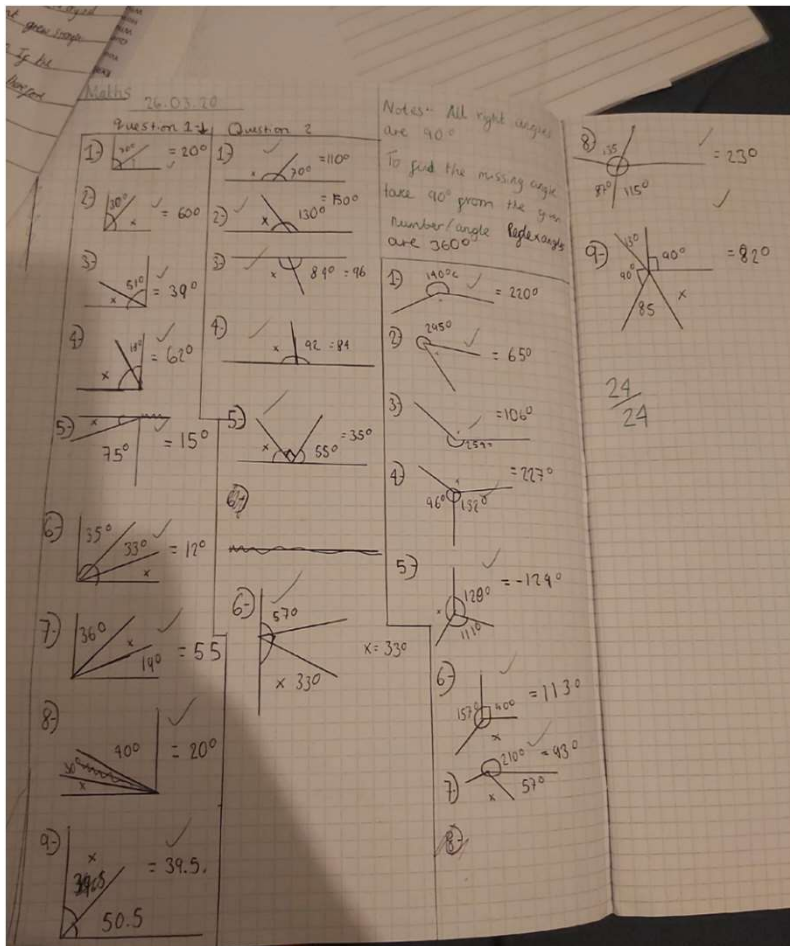 Maths 26.03.20
Question 1 ↓
1) 70° = 20°
2) 30° x = 60°
3) 51° x = 39°
4) 18° x = 62°
5-) x 75° = 15°
6-) 35° 33° x = 12°
7-) 36° x 19° = 55
8-) 40° 30° x = 20°
9-) x = 39.5
50.5
Question 2
1) x 70° = 110°
2-) x 130° = 150°
3) x 84° = 96
4) x 92 = 84
5) x 55° = 35°
6-)
6-) 57°
x 33° x = 33°
Notes- All right angles
are 90°
To find the missing angle
take 90° from the
number/angle Reflex angles
are 360°
1) 140° = 220°
2) 295° = 65°
3) 254° = 106°
4) 96° 132° = 227°
5) x 120° 111° = -129°
6-) 157° 90° x = 113°
7-) 210° = 93°
x 57°
8-)
8) 135 87° 115° = 23°
9-) 13° 90° 90° 85 x = 82°
24/24